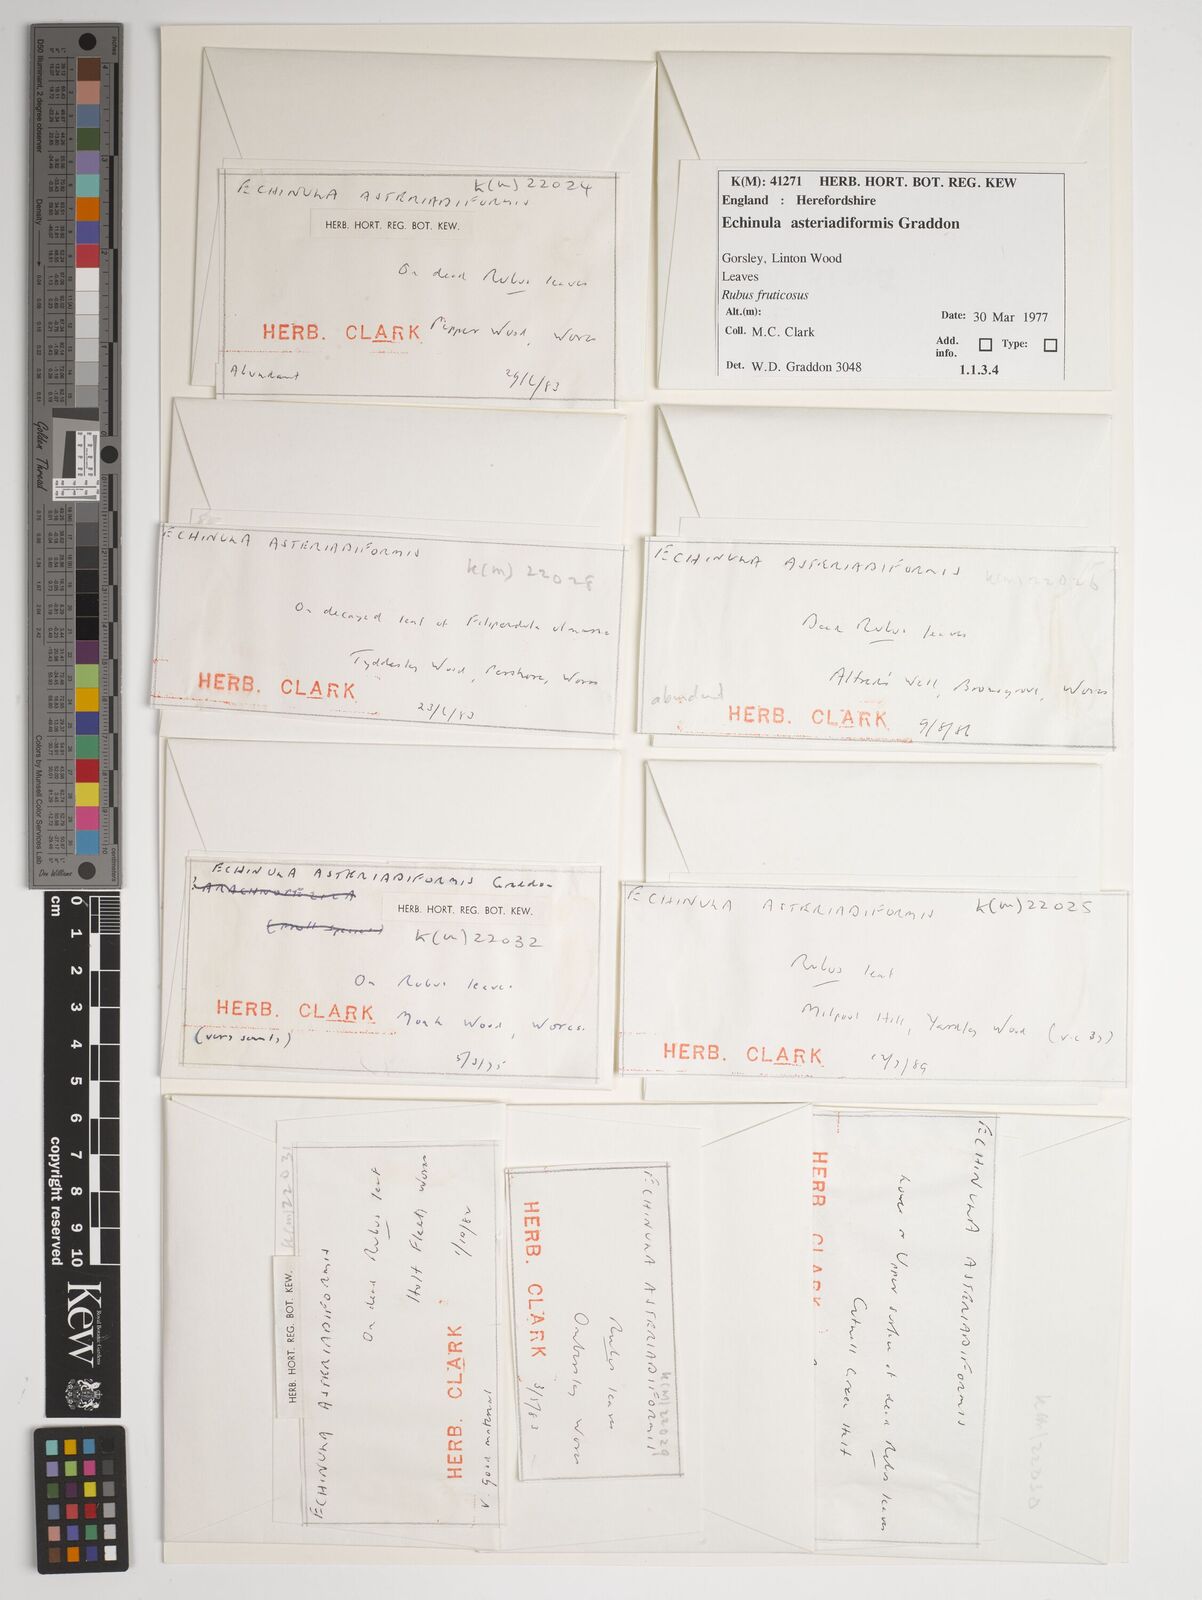 K(M) 22024
ECHINULA ASTERIADIFORMIS
HERB. HORT. REG. BOT. KEW.
On dead Rubus leaves
HERB. CLARK Pepper Wood, Worcs
Abundant
K(M): 41271 HERB. HORT. BOT. REG. KEW
England : Herefordshire
Echinula asteriadiformis Graddon
Gorsley, Linton Wood
Leaves
Rubus fruticosus
Alt.(m):
Date: 30 Mar 1977
Coll. M.C. Clark
Add. info. Type:
Det. W.D. Graddon 3048
1.1.3.4
ECHINULA ASTERIADIFORMIS
K(M) 22028
On decayed leaf of Filipendula ulmaria
Tyddesley Wood, Pershore, Worcs
HERB. CLARK
ECHINULA ASTERIADIFORMIS
Dead Rubus leaves
Alfred's Well, Bromsgrove, Worcs
abundant
HERB. CLARK
ECHINULA ASTERIADIFORMIS Graddon
HERB. HORT. REG. BOT. KEW.
K(M) 22032
On Rubus leaves
HERB. CLARK Monk Wood, Worcs.
(very scanty)
5/3/75
ECHINULA ASTERIADIFORMIS K(M) 22025
Rubus leaf
Millpool Hill, Yardley Wood
HERB. CLARK
K(M) 22031
HERB. HORT. REG. BOT. KEW.
ECHINULA ASTERIADIFORMIS
On dead Rubus leaf
Holt Fleet, Worcs
1/10/82
HERB. CLARK
v. good material
ECHINULA ASTERIADIFORMIS
K(M) 22029
Rubus leaves
Ombersley Worcs
HERB. CLARK
ECHINULA ASTERIADIFORMIS
Lower & Upper surface of dead Rubus leaves
Green Holt
HERB CLARK
K(M) 22030
inches
D50 Illuminant, 2 degree observer
Density
Golden Thread
Colors by Munsell Color Services Lab
centimeters
Don Williams
0 1 2 3 4 5 6 7 8 9 10
cm
copyright reserved
Kew
Royal Botanic Gardens